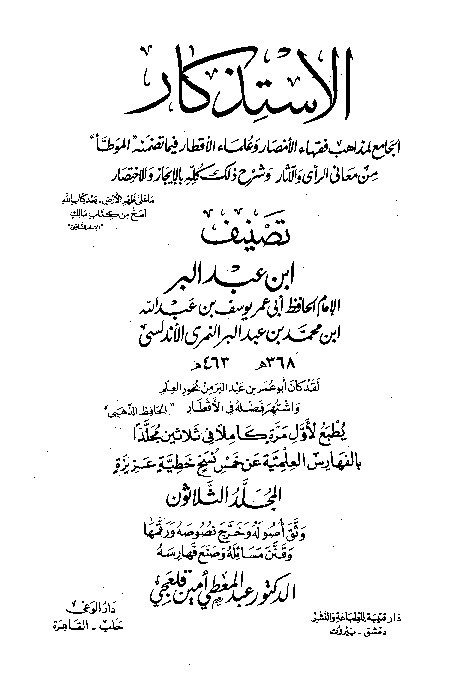 الاستذكار
الجامع لمذاهب فقهاء الأمصار وعلماء الأقطار فيما تضمنه "الموطأ"
من معاني الرأي والآثار وشرح ذلك كله بالإيجاز والاختصار
ما على ظهر الأرض - بعد كتاب الله
أصح من كتاب مالك
"الإمام الشافعي"
تصنيف
ابن عبد البر
الإمام الحافظ أبي عمر يوسف بن عبد الله
ابن محمد بن عبد البر النمري الأندلسي
٣٦٨هـ ٤٦٣هـ
لقد كان أبو عمر بن عبد البر من بحور العلم
واشتهر فضله في الأقطار "الحافظ الذهبي"
يُطبع لأول مرة كاملاً في ثلاثين مجلدًا
بالفهارس العلمية عن خمس نسخ خطية عزيزة
المجلد الثلاثون
وثق أصوله وخرج نصوصه ورقمها
وقنن مسائله وصنع فهارسه
الدكتور عبد المعطي أمين قلعجي
دار قتيبة للطباعة والنشر
دمشق - بيروت
دار الوعي
حلب - القاهرة